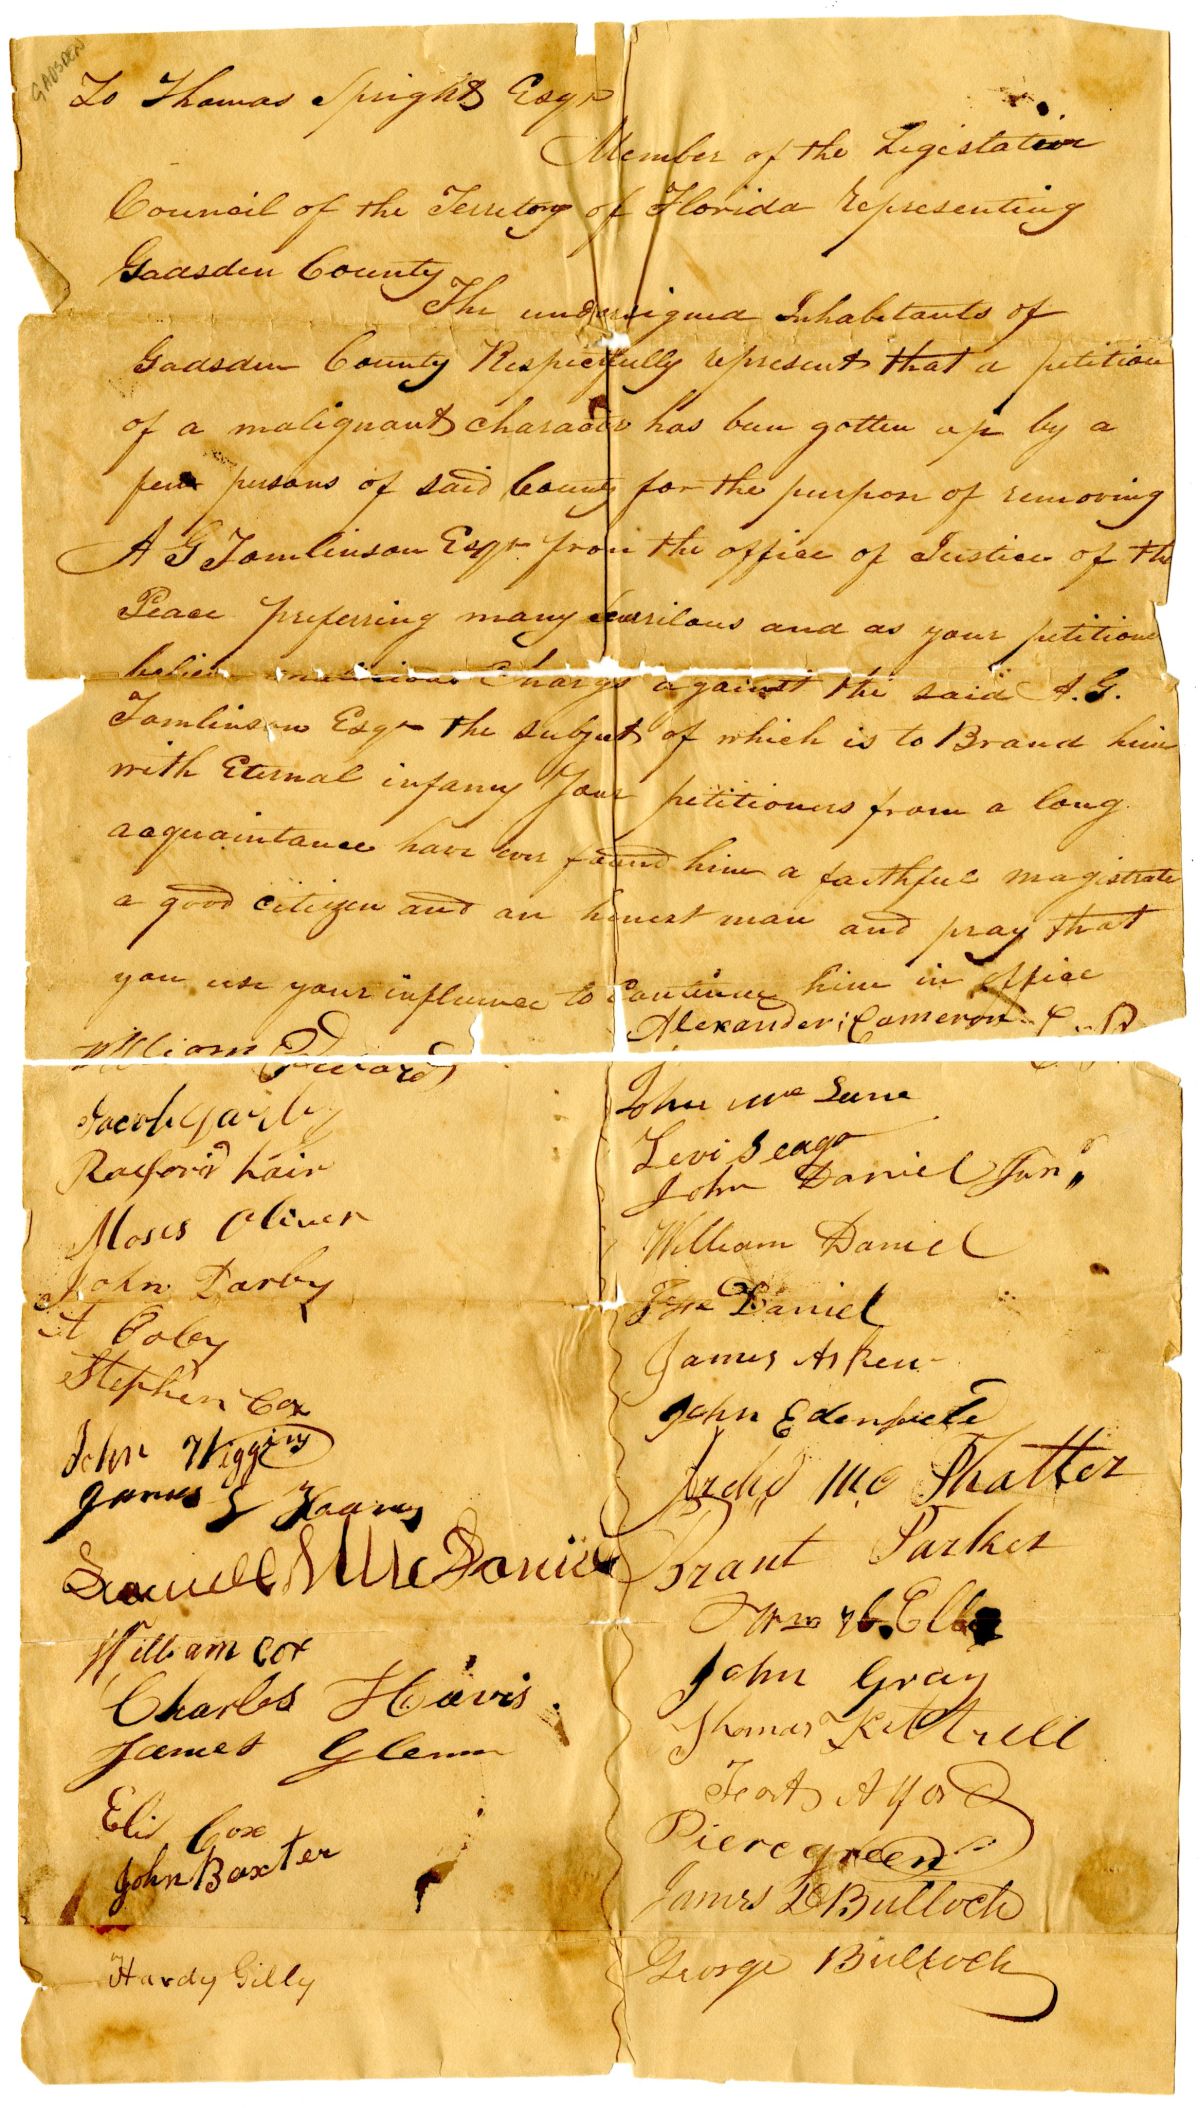 GADSDEN
To Thomas Spright Esqr
Member of the Legislative
Council of the Territory of Florida representing
Gadsden County
The undersigned Inhabitants of
Gadsden County Respectfully represent that a petition
of a malignant character has been gotten up by a
few persons of said County for the purpose of removing
A G Tomlinson Esqr from the office of Justice of the
Peace preferring many scurilous and as your petitioners
believe malicious Charges against the said A. G.
Tomlinson Esqr the subject of which is to Brand him
with Eternal infamy Your petitioners from a long
acquaintance have ever found him a faithful magistrate
a good citizen and an honest man and pray that
you use your influence to continue him in office
Alexander Cameron
William Edwards
Jacob
Raiford hair
Moses Oliver
John Darby
A Coley
Stephen Cox
John Wiggins
James L
Samuell McDaniel
William Cox
Charles Havis
James Glenn
Eli Cox
John Baxter
Hardy Gilly
John Mc Lane
Levi Seago
John Daniel Junr
William Daniel
Daniel
James Askew
John
Archd Mc Phatter
Grant Parker
Wm
John Gray
Thomas Kittrell
Alford
Pierce green
James D Bulloch
George Bulloch